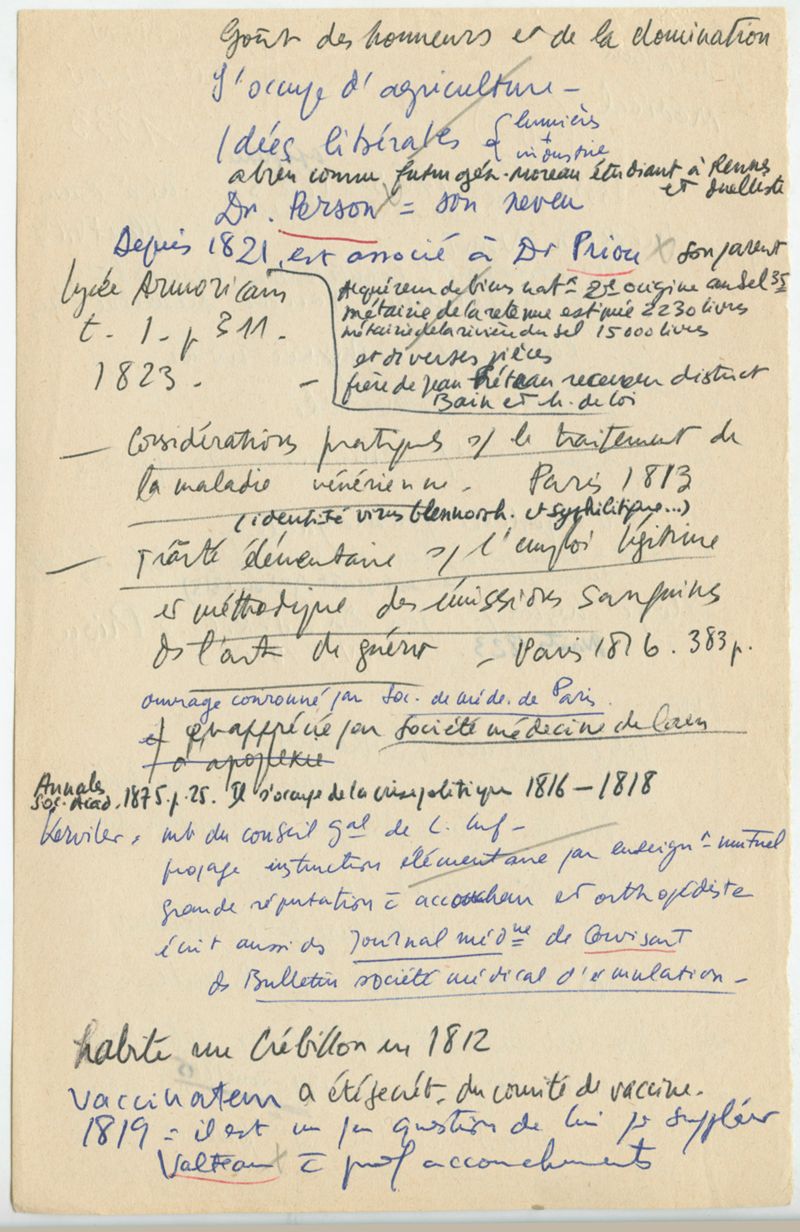 Goût des honneurs et de la domination
S'occupe d'agriculture -
Idées libérales { lumières
+ industrie
a bien connu futur gén. Moreau étudiant à Rennes
et duelliste
Dr. Person = son neveu
Depuis 1821, est associé à Dr Priou son parent
Lycée Armoricain
t. 1. p 311.
1823. -
Acquéreur de biens natx 2e origine au Sel 35
métairie de la retenue estimée 2230 livres
métairie de la rivière du Sel 15000 livres
et diverses pièces
frère de Jean receveur district
Bain et h. de loi
— Considérations pratiques s/ le traitement de
la maladie vénérienne. Paris 1813
(identité virus blennorrh. et syphilitique...)
— Traité élémentaire s/ l'emploi légitime
et méthodique des émissions sanguines
ds l'art de guérir - Paris 1816. 383 p.
ouvrage couronné par Soc. de méde. de Paris.
et apprécié par Société médecine de Caen
d'apoplexie
Annales
Soc. Acad. 1875. p. 25. Il s'occupe de la crise politique 1816 — 1818
Kerviler = mb du conseil gal de L. Inf -
propage instruction élémentaire par enseignt mutuel
grande réputation c accoucheur et orthopédiste
écrit aussi ds Journal médne de Corvisart
ds Bulletin société médical d'émulation -
habite rue Crébillon en 1812
Vaccinateur a été secrét. du comité de vaccine.
1819 = il est un peu question de lui pr suppléer
Valteau c prof accouchements